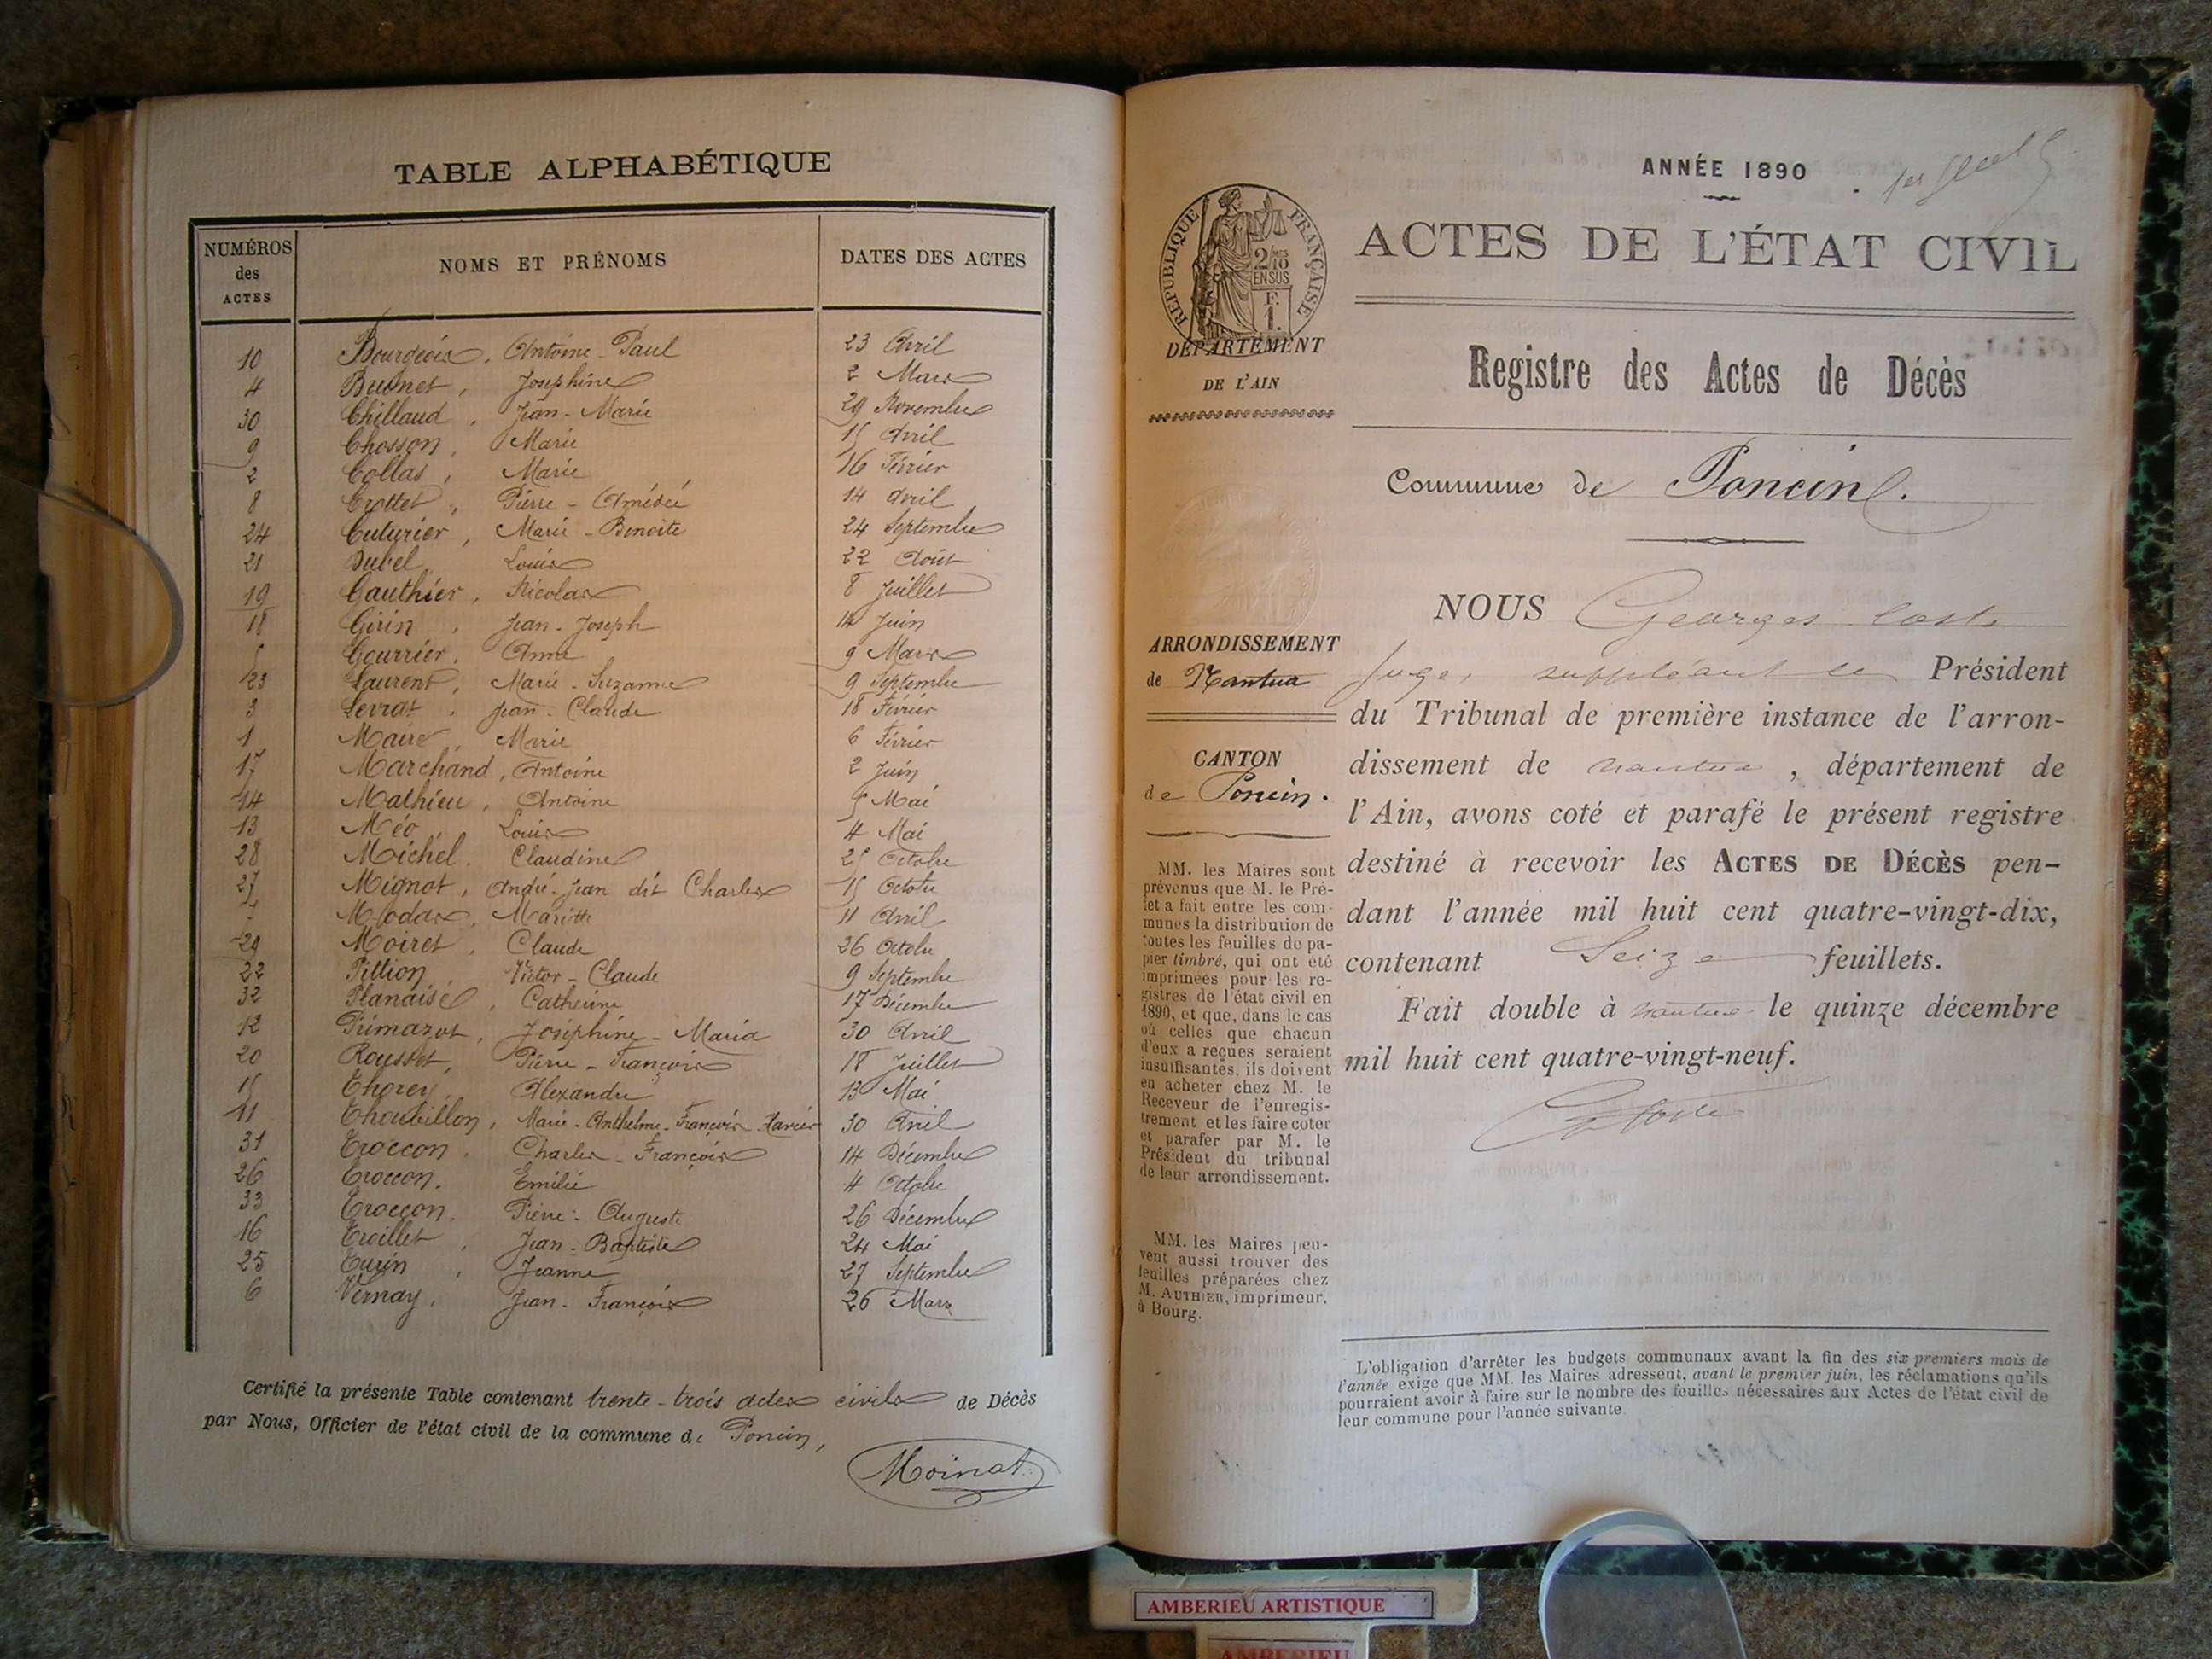 TABLE ALPHABÉTIQUE
NUMÉROS des ACTES NOMS ET PRÉNOMS DATES DES ACTES
10 Bourgeois, Antoine-Paul 23 Avril
4 Brunet, Joséphine 2 Mars
30 Chillaud, Jean-Marie 29 Novembre
9 Chosson, Marie 15 Avril
2 Collas, Marie 16 Février
8 Crottet, Pierre-Amédée 14 Avril
24 Cuturier, Marie-Benoite 24 Septembre
21 Dubel, Louis 22 Août
19 Gauthier, Nicolas 8 Juillet
18 Girin, Jean-Joseph 14 Juin
5 Gourrier, Anne 9 Mars
23 Laurent, Marie-Suzanne 9 Septembre
3 Levrat, Jean-Claude 18 Février
1 Maire, Marie 6 Février
17 Marchand, Antoine 2 Juin
14 Mathieu, Antoine 5 Mai
13 Méo Louis 4 Mai
28 Michel, Claudine 25 Octobre
27 Mignot, André-Jean dit Charles 15 Octobre
7 Mariette 11 Avril
29 Moiret, Claude 26 Octobre
22 Pittion, Victor-Claude 9 Septembre
32 Planaise, Catherine 17 Décembre
12 Primazot, Joséphine-Maria 30 Avril
20 Rousset, Pierre-François 18 Juillet
15 Thorey, Alexandre 13 Mai
11 Thoubillon, Marie-Anthelme-François-Xavier 30 Avril
31 Troccon, Charles-François 14 Décembre
26 Troccon, Emilie 4 Octobre
33 Troccon, Pierre-Auguste 26 Décembre
16 Troillet, Jean-Baptiste 24 Mai
25 Turin, Jeanne 27 Septembre
6 Vernay, Jean-François 26 Mars
Certifié la présente Table contenant trente-trois actes civils de Décès
par Nous, Officier de l'état civil de la commune de Poncin,
Moinat
ANNÉE 1890
ACTES DE L'ÉTAT CIVIL
RÉPUBLIQUE FRANÇAISE
2/10 EN SUS
F. 1.
DÉPARTEMENT
DE L'AIN
Registre des Actes de Décès
Commune de Poncin.
ARRONDISSEMENT
de Nantua
CANTON
de Poncin.
MM. les Maires sont
prévenus que M. le Pré-
fet a fait entre les com-
munes la distribution de
toutes les feuilles de pa-
pier timbré, qui ont été
imprimées pour les re-
gistres de l'état civil en
1890, et que, dans le cas
où celles que chacun
d'eux a reçues seraient
insuffisantes, ils doivent
en acheter chez M. le
Receveur de l'enregis-
trement et les faire coter
et parafer par M. le
Président du tribunal
de leur arrondissement.
MM. les Maires peu-
vent aussi trouver des
feuilles préparées chez
M. AUTHIER, imprimeur,
à Bourg.
NOUS Georges Coste
Juge, suppléant le Président
du Tribunal de première instance de l'arron-
dissement de nantua, département de
l'Ain, avons coté et parafé le présent registre
destiné à recevoir les ACTES DE DÉCÈS pen-
dant l'année mil huit cent quatre-vingt-dix,
contenant Seize feuillets.
Fait double à nantua le quinze décembre
mil huit cent quatre-vingt-neuf.
L'obligation d'arrêter les budgets communaux avant la fin des six premiers mois de
l'année exige que MM. les Maires adressent, avant le premier juin, les réclamations qu'ils
pourraient avoir à faire sur le nombre des feuilles nécessaires aux Actes de l'état civil de
leur commune pour l'année suivante.
AMBERIEU ARTISTIQUE
AMBERIEU